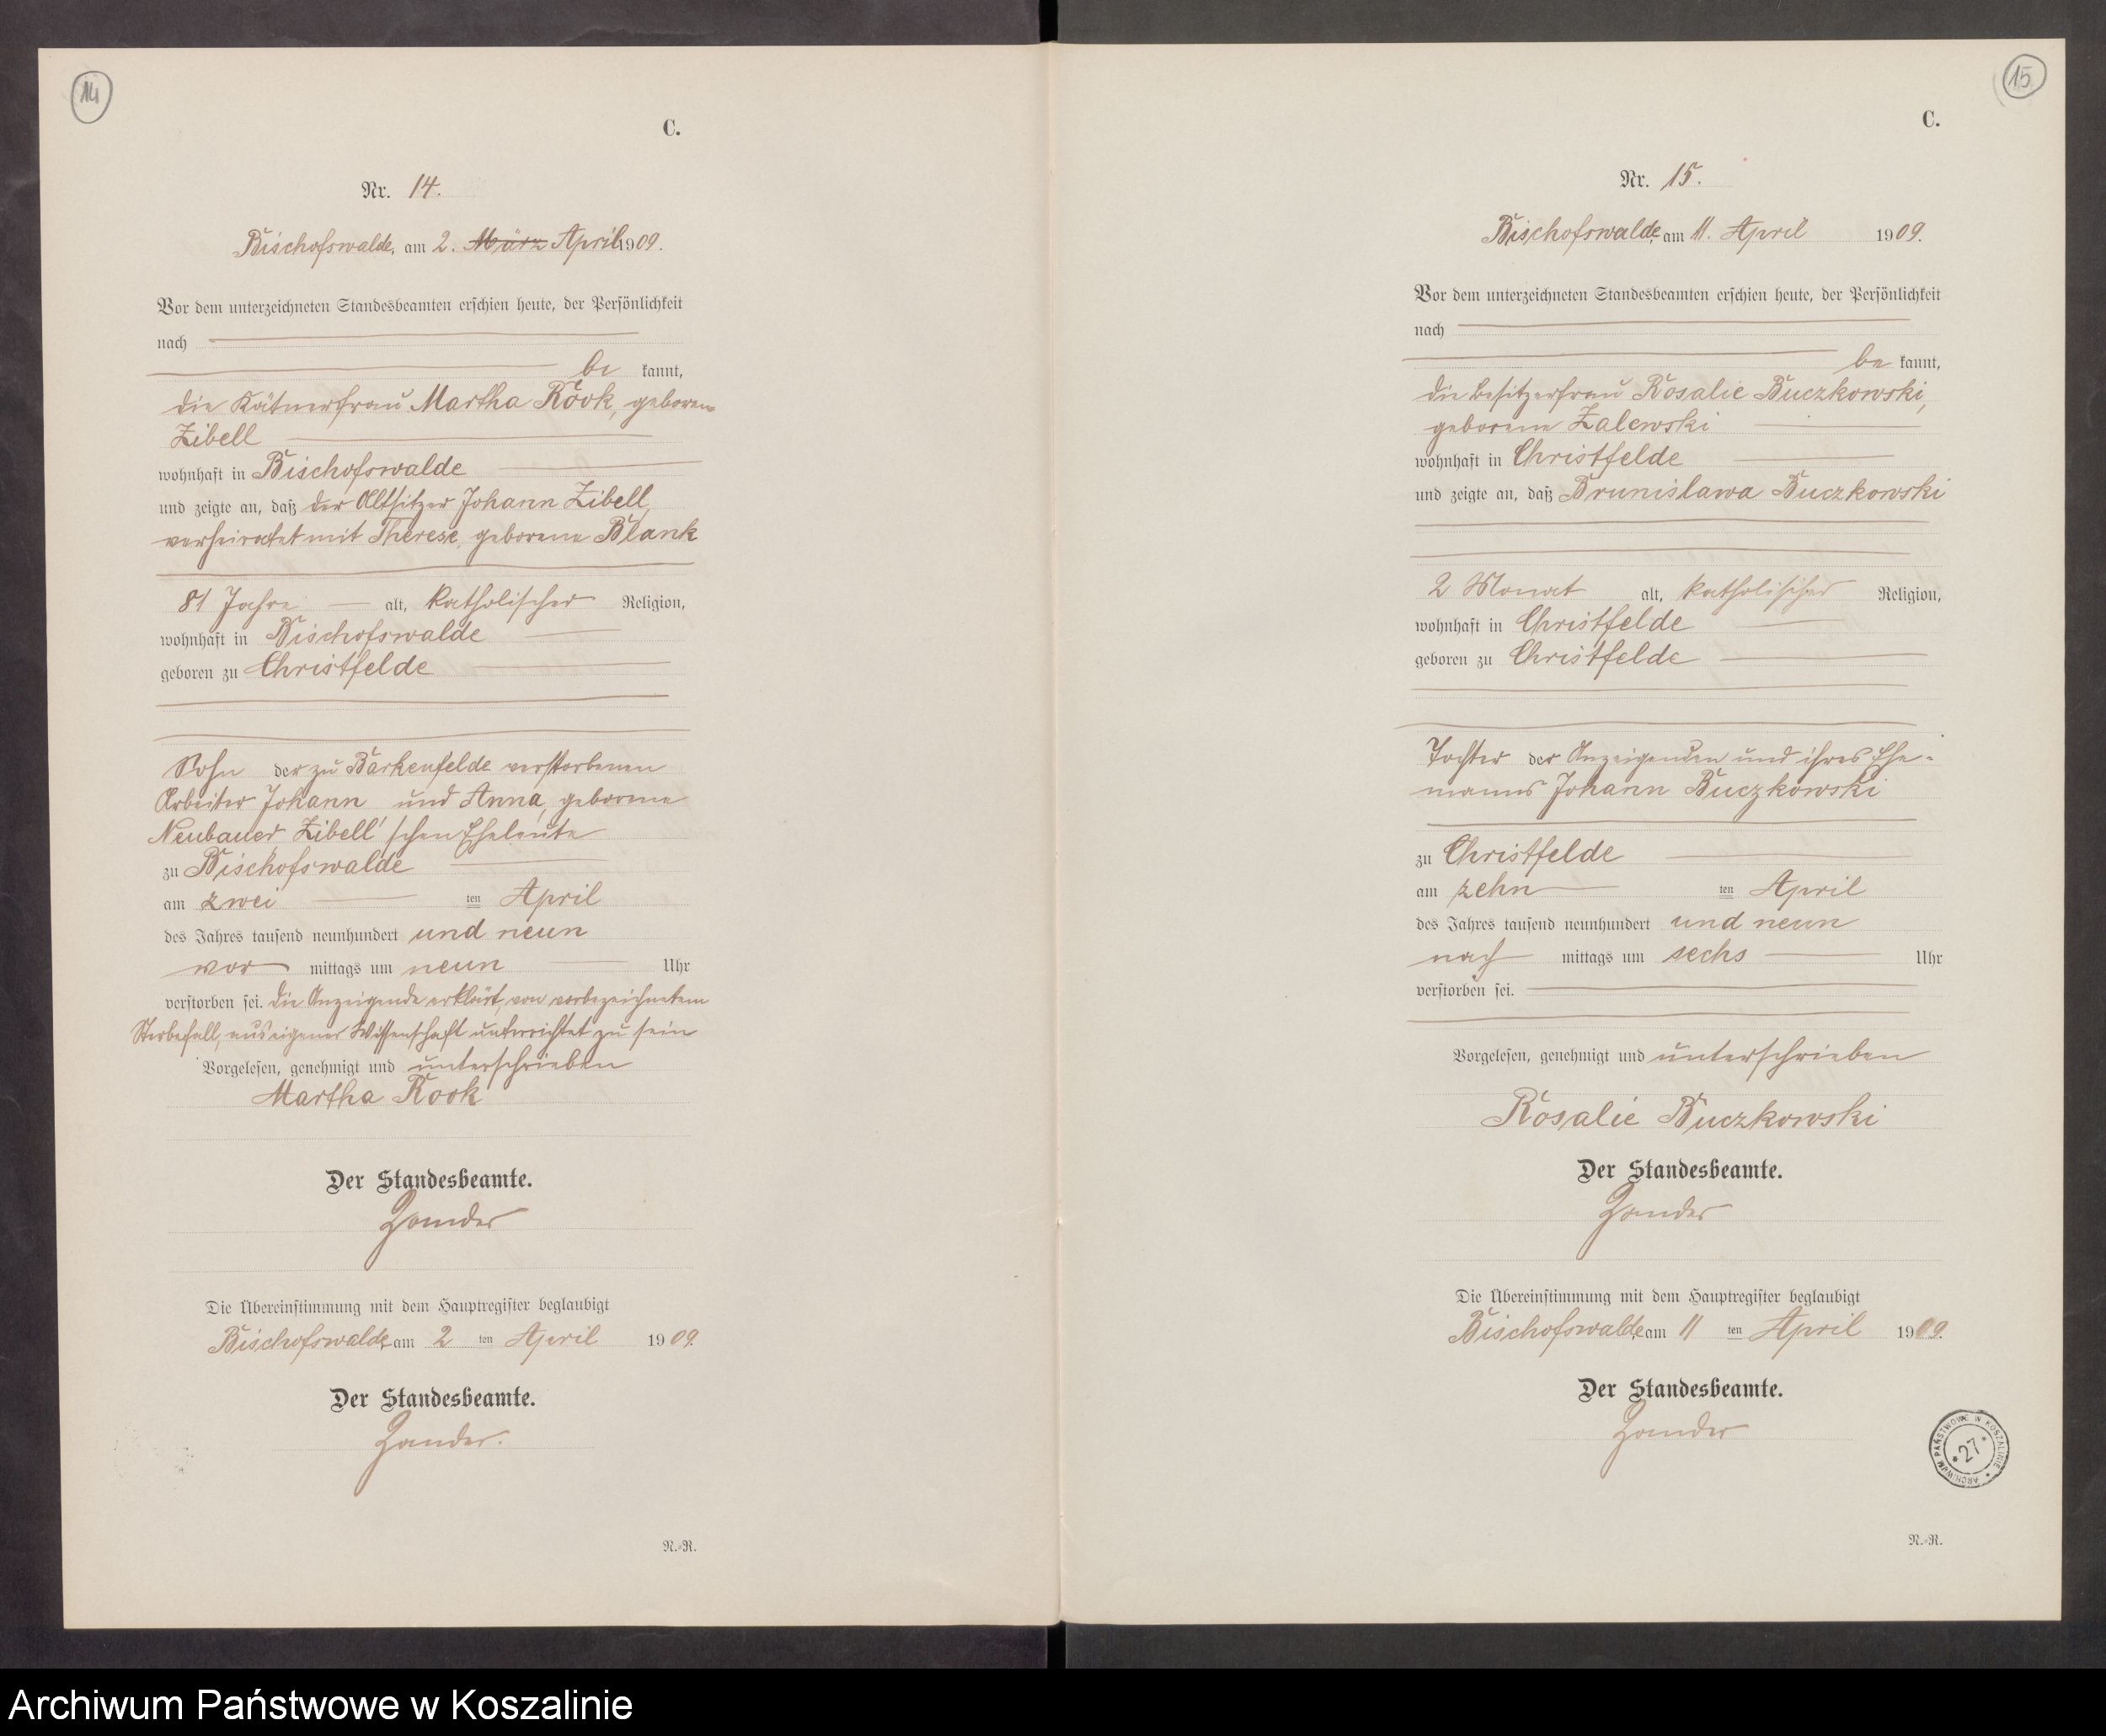 14
C.
Nr. 14.
Bischofswalde, am 2. März April 1909.
Vor dem unterzeichneten Standesbeamten erschien heute, der Persönlichkeit
nach
be kannt,
die Kätnerfrau Martha Rook, geborene
Zibell
wohnhaft in Bischofswalde
und zeigte an, daß der Altsitzer Johann Zibell,
verheiratet mit Therese, geborene Blank
81 Jahre alt, katholischer Religion,
wohnhaft in Bischofswalde
geboren zu Christfelde
Sohn der zu Barkenfelde verstorbenen
Arbeiter Johann und Anna, geborene
Neubauer Zibell'schen Eheleute
zu Bischofswalde
am zwei ten April
des Jahres tausend neunhundert und neun
vor mittags um neun Uhr
verstorben sei. Die Anzeigende erklärt, von vorbezeichnetem
Sterbefall, aus eigener Wissenschaft unterrichtet zu sein
Vorgelesen, genehmigt und unterschrieben
Martha Rook
Der Standesbeamte.
Zander
Die Übereinstimmung mit dem Hauptregister beglaubigt
Bischofswalde, am 2 ten April 1909.
Der Standesbeamte.
Zander.
N.-R.
15
C.
Nr. 15.
Bischofswalde, am 11. April 1909.
Vor dem unterzeichneten Standesbeamten erschien heute, der Persönlichkeit
nach
be kannt,
die Besitzerfrau Rosalie Buczkowski,
geborene Zalewski
wohnhaft in Christfelde
und zeigte an, daß Brunislawa Buczkowski
2 Monat alt, katholischer Religion,
wohnhaft in Christfelde
geboren zu Christfelde
Tochter der Anzeigenden und ihres Ehe-
manns Johann Buczkowski
zu Christfelde
am zehn ten April
des Jahres tausend neunhundert und neun
nach mittags um sechs Uhr
verstorben sei.
Vorgelesen, genehmigt und unterschrieben
Rosalie Buczkowski
Der Standesbeamte.
Zander
Die Übereinstimmung mit dem Hauptregister beglaubigt
Bischofswalde, am 11 ten April 1909.
Der Standesbeamte.
Zander
ARCHIWUM PAŃSTWOWE W KOSZALINIE
* 27 *
N.-R.
Archiwum Państwowe w Koszalinie